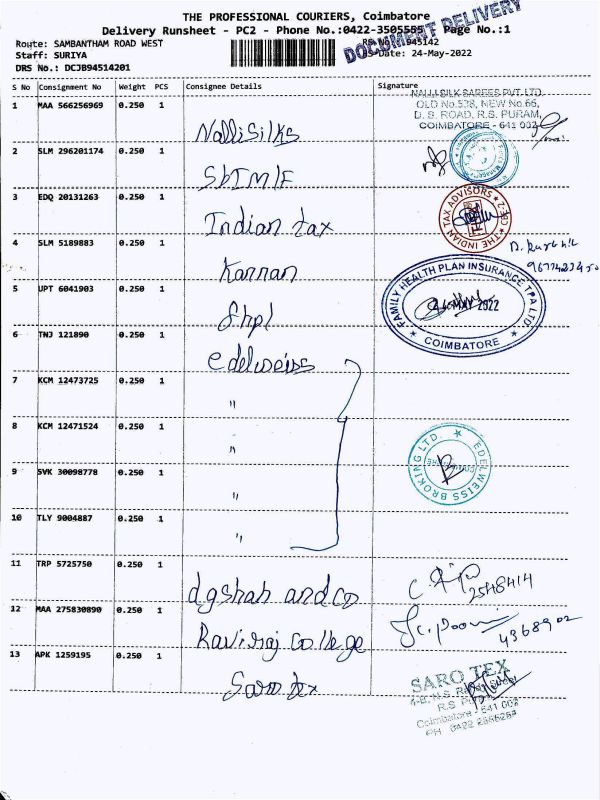 THE PROFESSIONAL COURIERS, Coimbatore
Delivery Runsheet - PC2 - Phone No.:0422-3505555 Page No.:1
DOCUMENT DELIVERY
Route: SAMBANTHAM ROAD WEST
Staff: SURIYA
24-May-2022
DRS No.: DCJB94514201
S No Consignment No Weight PCS Consignee Details Signature
NALLI SILK SAREES PVT. LTD.
OLD No.538, NEW No.66,
D. B. ROAD, R.S. PURAM,
COIMBATORE - 641 002
1 MAA 566256969 0.250 1 Nalli Silks
2 SLM 296201174 0.250 1 SbIMF
3 EDQ 20131263 0.250 1 Indian tax
THE INDIAN TAX ADVISORS CBE-2
4 SLM 5189883 0.250 1 Kannan
5 UPT 6041903 0.250 1 fhpl
FAMILY HEALTH PLAN INSURANCE TPA LTD.
MAY 2022
COIMBATORE
6 TNJ 121890 0.250 1 edelweiss
7 KCM 12473725 0.250 1 "
8 KCM 12471524 0.250 1 "
EDELWEISS BROKING LTD.
9 SVK 30098778 0.250 1 "
10 TLY 9004887 0.250 1 "
11 TRP 5725750 0.250 1 dgshah and co
2548414
12 MAA 275830890 0.250 1 Raviraj College
4368902
13 APK 1259195 0.250 1 Saro tex
SARO TEX
R.S
Coimbatore - 641 002
PH 0422